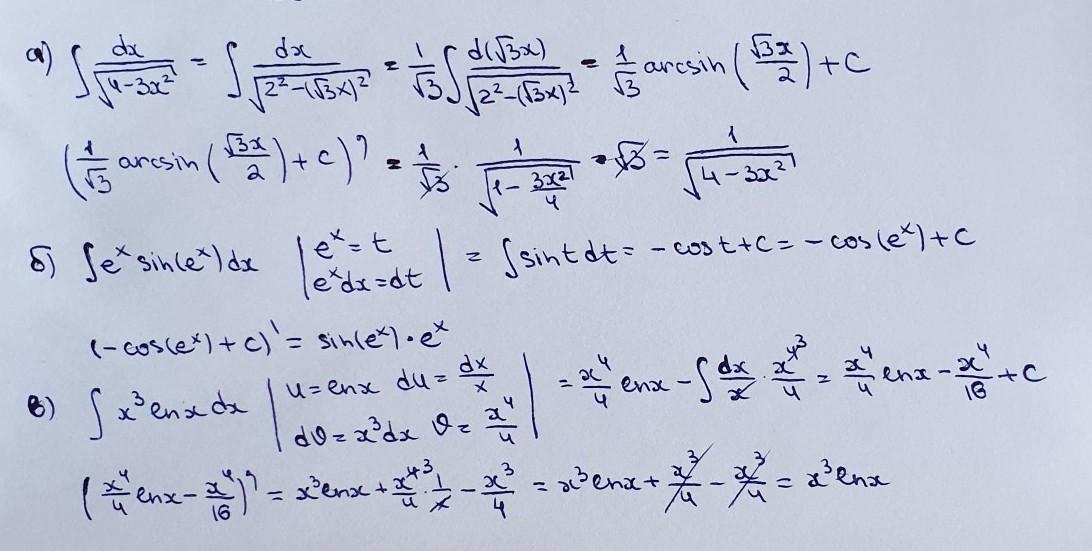 а) ∫ dx/√(4-3x²) = ∫ dx/√(2²-(√3x)²) = 1/√3 ∫ d(√3x)/√(2²-(√3x)²) = 1/√3 arcsin (√3x/2) + C
(1/√3 arcsin (√3x/2) + C)' = 1/√3 · 1/√(1 - 3x²/4) · √3 = 1/√(4-3x²)
б) ∫eˣ sin(eˣ)dx |eˣ = t eˣdx = dt| = ∫sint dt = -cost + C = -cos(eˣ) + C
(-cos(eˣ) + C)' = sin(eˣ)·eˣ
в) ∫ x³ lnx dx |u = lnx du = dx/x dϑ = x³dx ϑ = x⁴/4| = x⁴/4 lnx - ∫ dx/x · x⁴ ³/4 = x⁴/4 lnx - x⁴/16 + C
(x⁴/4 lnx - x⁴/16)' = x³lnx + x⁴ ³/4 · 1/x - x³/4 = x³lnx + x³/4 - x³/4 = x³lnx